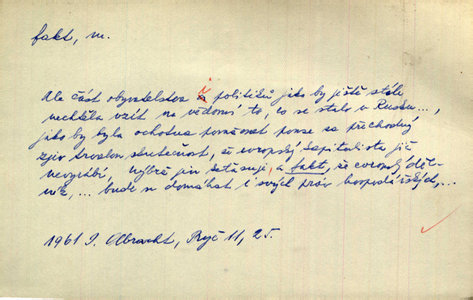 fakt, m.
Ale část obyvatelstva a politiků jako by ještě stále
nechtěla vzít na vědomí to, co se stalo v Rusku...,
jako by byla ochotna považovat pouze za přechodný
zjev skutečnost, že evropský kapitalista již
nevyrábí, nýbrž jen šetasuje, a fakt, že evropský děl-
ník, ... bude se domáhat i svých práv hospodářských,...
1961 I. Olbracht, Ryč 11, 25.